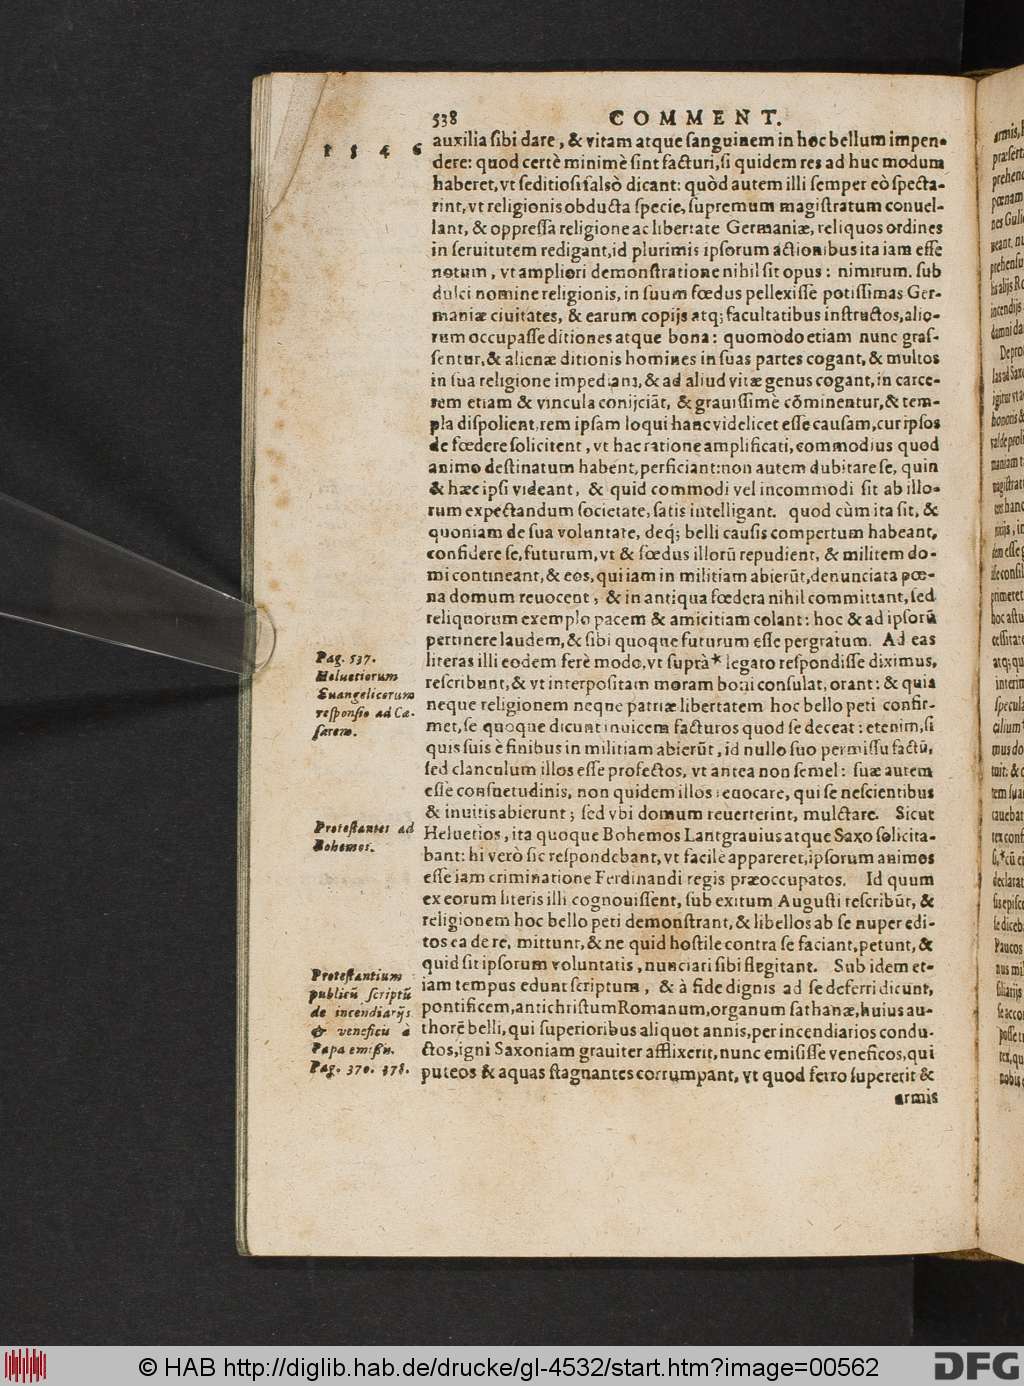 538 COMMENT.
1546
auxilia sibi dare, & vitam atque sanguinem in hoc bellum impen-
dere: quod certè minimè sint facturi, si quidem res ad huc modum
haberet, vt seditiosi falsò dicant: quòd autem illi semper eò specta-
rint, vt religionis obducta specie, supremum magistratum conuel-
lant, & oppressa religione ac libertate Germaniæ, reliquos ordines
in seruitutem redigant, id plurimis ipsorum actionibus ita iam esse
notum, vt ampliori demonstratione nihil sit opus: nimirum. sub
dulci nomine religionis, in suum fœdus pellexisse potissimas Ger-
maniæ ciuitates, & earum copijs atq; facultatibus instructos, alio-
rum occupasse ditiones atque bona: quomodo etiam nunc gras-
sentur, & alienæ ditionis homines in suas partes cogant, & multos
in sua religione impediant, & ad aliud vitæ genus cogant, in carce-
rem etiam & vincula conijciāt, & grauissimè cōminentur, & tem-
pla dispolient, rem ipsam loqui hanc videlicet esse causam, cur ipsos
de fœdere solicitent, vt hac ratione amplificati, commodius quod
animo destinatum habent, perficiant: non autem dubitare se, quin
& hæc ipsi videant, & quid commodi vel incommodi sit ab illo-
rum expectandum societate, satis intelligant. quod cùm ita sit, &
quoniam de sua voluntate, deq; belli causis compertum habeant,
confidere se, futurum, vt & fœdus illorū repudient, & militem do-
mi contineant, & eos, qui iam in militiam abierūt, denunciata pœ-
na domum reuocent, & in antiqua fœdera nihil committant, sed
reliquorum exemplo pacem & amicitiam colant: hoc & ad ipsorū
pertinere laudem, & sibi quoque futurum esse pergratum. Ad eas
literas illi eodem ferè modo, vt suprà* legato respondisse diximus,
rescribunt, & vt interpositam moram boni consulat, orant: & quia
neque religionem neque patriæ libertatem hoc bello peti confir-
met, se quoque dicunt inuicem facturos quod se deceat: etenim, si
quis suis è finibus in militiam abierūt, id nullo suo permissu factū,
sed clanculum illos esse profectos, vt antea non semel: suæ autem
esse consuetudinis, non quidem illos reuocare, qui se nescientibus
& inuitis abierunt; sed vbi domum reuerterint, mulctare. Sicut
Heluetios, ita quoque Bohemos Lantgrauius atque Saxo solicita-
bant: hi verò sic respondebant, vt facilè appareret, ipsorum animos
esse iam criminatione Ferdinandi regis præoccupatos. Id quum
ex eorum literis illi cognouissent, sub exitum Augusti rescribūt, &
religionem hoc bello peti demonstrant, & libellos ab se nuper edi-
tos ea de re, mittunt, & ne quid hostile contra se faciant, petunt, &
quid sit ipsorum voluntatis, nunciari sibi flegitant. Sub idem et-
iam tempus edunt scriptum, & à fide dignis ad se deferri dicunt,
pontificem, antichristum Romanum, organum sathanæ, huius au-
thorē belli, qui superioribus aliquot annis, per incendiarios condu-
ctos, igni Saxoniam grauiter afflixerit, nunc emisisse veneficos, qui
puteos & aquas stagnantes corrumpant, vt quod ferro supererit &
armis
Pag. 537.
Heluetiorum
Euangelicorum
responsio ad Cæ-
sarem.
Protestantes ad
Bohemos.
Protestantium
publicū scriptū
de incendiarijs
& veneficis à
Papa emissis.
Pag. 370. 378.
© HAB http://diglib.hab.de/drucke/gl-4532/start.htm?image=00562
DFG